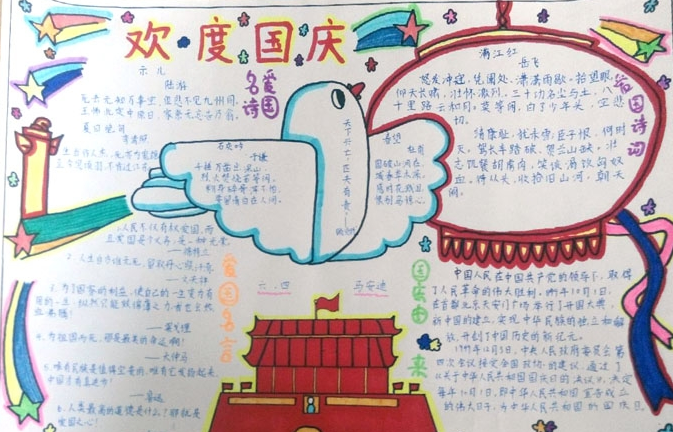 欢度国庆
爱国名诗
示儿
陆游
死去元知万事空,但悲不见九州同。
王师北定中原日,家祭无忘告乃翁。
夏日绝句
李清照
生当作人杰,死亦为鬼雄
至今思项羽,不肯过江东
石灰吟
于谦
千锤万凿出深山,
烈火焚烧若等闲。
粉骨碎骨浑不怕,
要留清白在人间。
天下兴亡,匹夫有责
顾炎武
春望
杜甫
国破山河在,
城春草木深。
感时花溅泪,
恨别鸟惊心。
爱国诗词
满江红
岳飞
怒发冲冠,凭阑处、潇潇雨歇。抬望眼,
仰天长啸,壮怀激烈。三十功名尘与土,八
千里路云和月。莫等闲,白了少年头,空悲
切。
靖康耻,犹未雪,臣子恨,何时
灭。驾长车踏破、贺兰山缺。壮
志饥餐胡虏肉,笑谈渴饮匈奴
血。待从头,收拾旧山河,朝天
阙。
爱国名言
1.人民不仅有权爱国,而
且爱国是个义务,是一种光荣。
——徐特立
2.人生自古谁无死,留取丹心照汗青
——文天祥
3.为了国家的利益,使自己的一生变为有
用的一生,纵然只能效绵薄之力,我也会热
血沸腾!
——果戈理
4.为祖国而死,那是最美的命运啊!
——大仲马
5.唯有民族是值得宝贵的,唯有它发扬起来,
中国才有真进步!
——鲁迅
6.人类最高的道德是什么?那就是
爱国之心!
六.四
马安迪
国庆由来
中国人民在中国共产党的领导下,取得
了人民革命的伟大胜利。1949年10月1日,
在首都北京天安门广场举行了开国大典,
新中国的建立,实现中华民族的独立和解
放,开创了中国历史的新纪元。
1949年12月3日,中央人民政府委员会第
四次会议接受全国政协的建议,通过了
《关于中华人民共和国国庆日的决议》,决定
每年10月1日,即中华人民共和国宣告成立
的伟大日子,为中华人民共和国的国庆日。